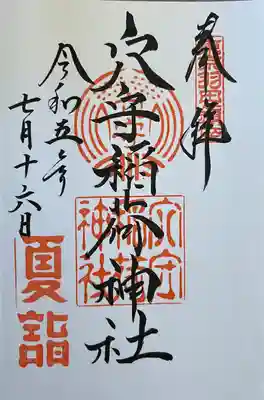 奉拝
穴守稲荷神社
穴守
稲荷
神社
令和五年
七月十六日
夏詣